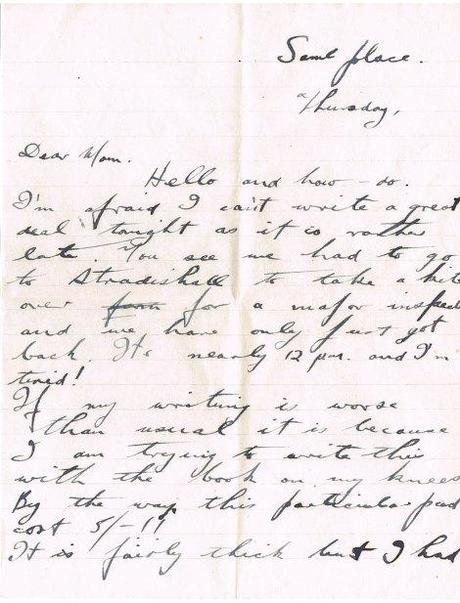 Same place.
Thursday,
Dear Mom.
Hello and how-do.
I'm afraid I can't write a great
deal tonight as it is rather
late. You see we had to go
to Stradishall to take a kite
over for a major inspec
and we have only just got
back. It's nearly 12 pm. and I'm
tired!
If my writing is worse
than usual it is because
I am trying to write this
with the book on my knees
By the way this particular pad
cost 5/-!!
It is fairly thick but I had